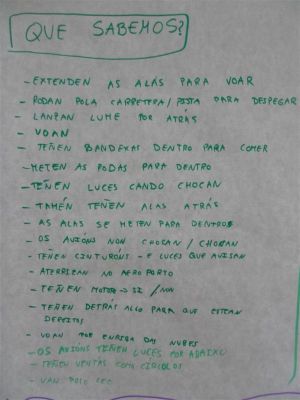 QUE SABEMOS?
- EXTENDEN AS ALAS PARA VOAR
- RODAN POLA CARRETERA/PISTA PARA DESPEGAR
- LANZAN LUME POR ATRÁS
- VOAN
- TEÑEN BANDEXAS DENTRO PARA COMER
- METEN AS RODAS PARA DENTRO
- TEÑEN LUCES CANDO CHOCAN
- TAMÉN TEÑEN ALAS ATRÁS
- AS ALAS SE METEN PARA DENTRO
- OS AVIÓNS NON CHOCAN / CHOCAN
- TEÑEN CINTURÓNS - E LUCES QUE AVISAN
- ATERRIZAN NO AEROPORTO
- TEÑEN MOTOR -> SI / NON
- TEÑEN DETRÁS ALGO PARA QUE ESTEAN
DEREITOS
- VOAN POR ENRIBA DAS NUBES
- OS AVIÓNS TEÑEN LUCES POR ABAIXO
- TEÑEN VENTAS COMO CÍRCULOS
- VAN POLO CEO